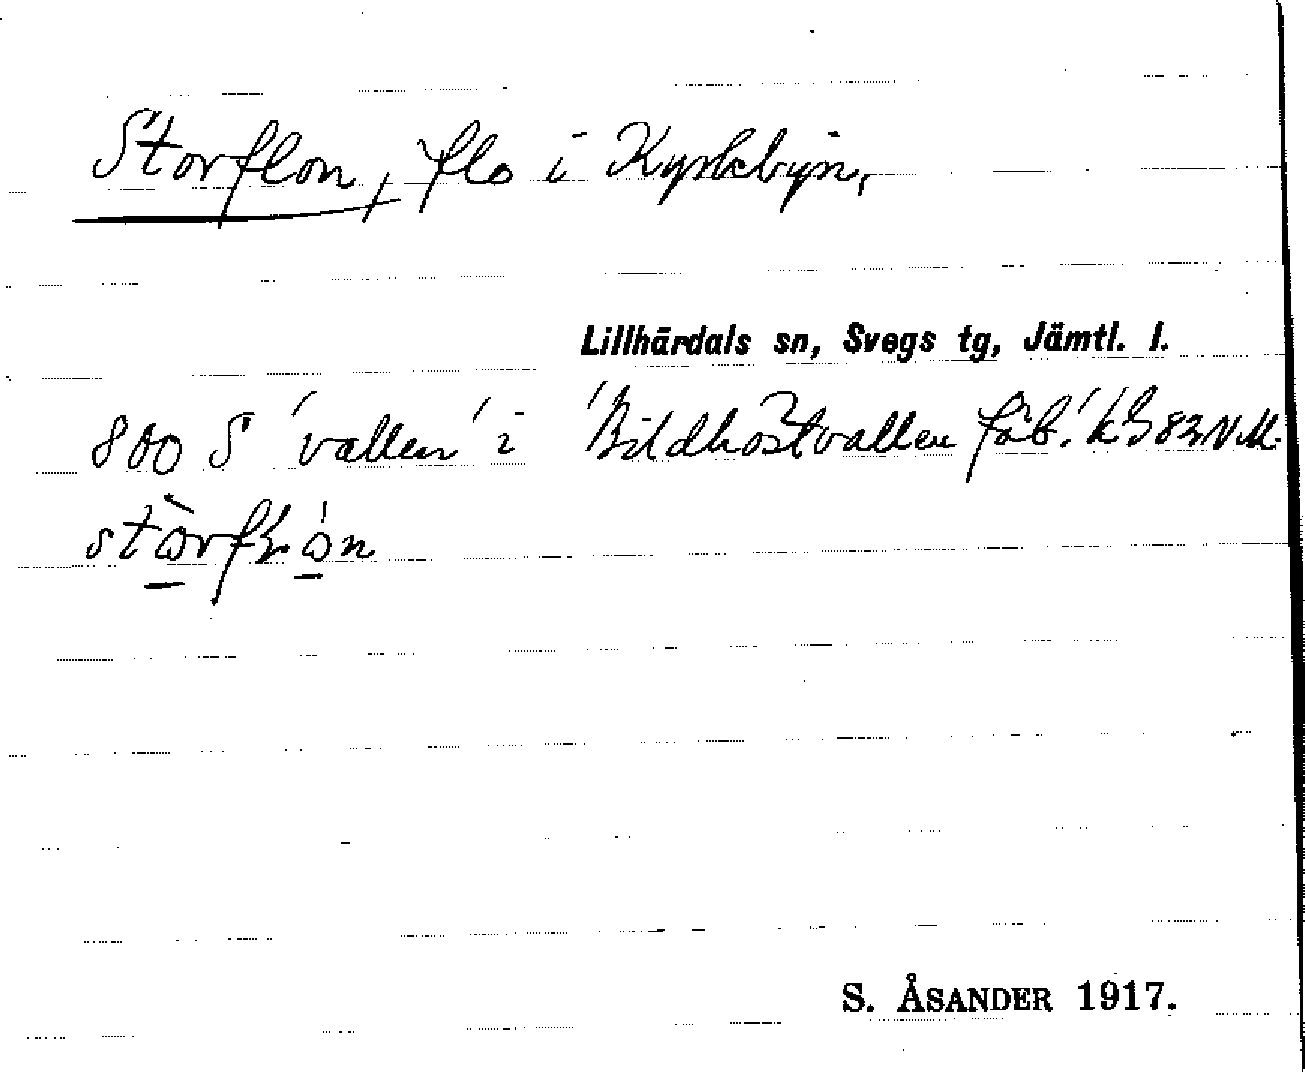 Storflon, flo i Kyrkbyn,
Lillhärdals sn, Svegs tg, Jämtl. l.
800 S 'vallen' i 'Bildhöstvallen fäb.' kB 83 N.M.
stòrfḷón
S. ÅSANDER 1917.